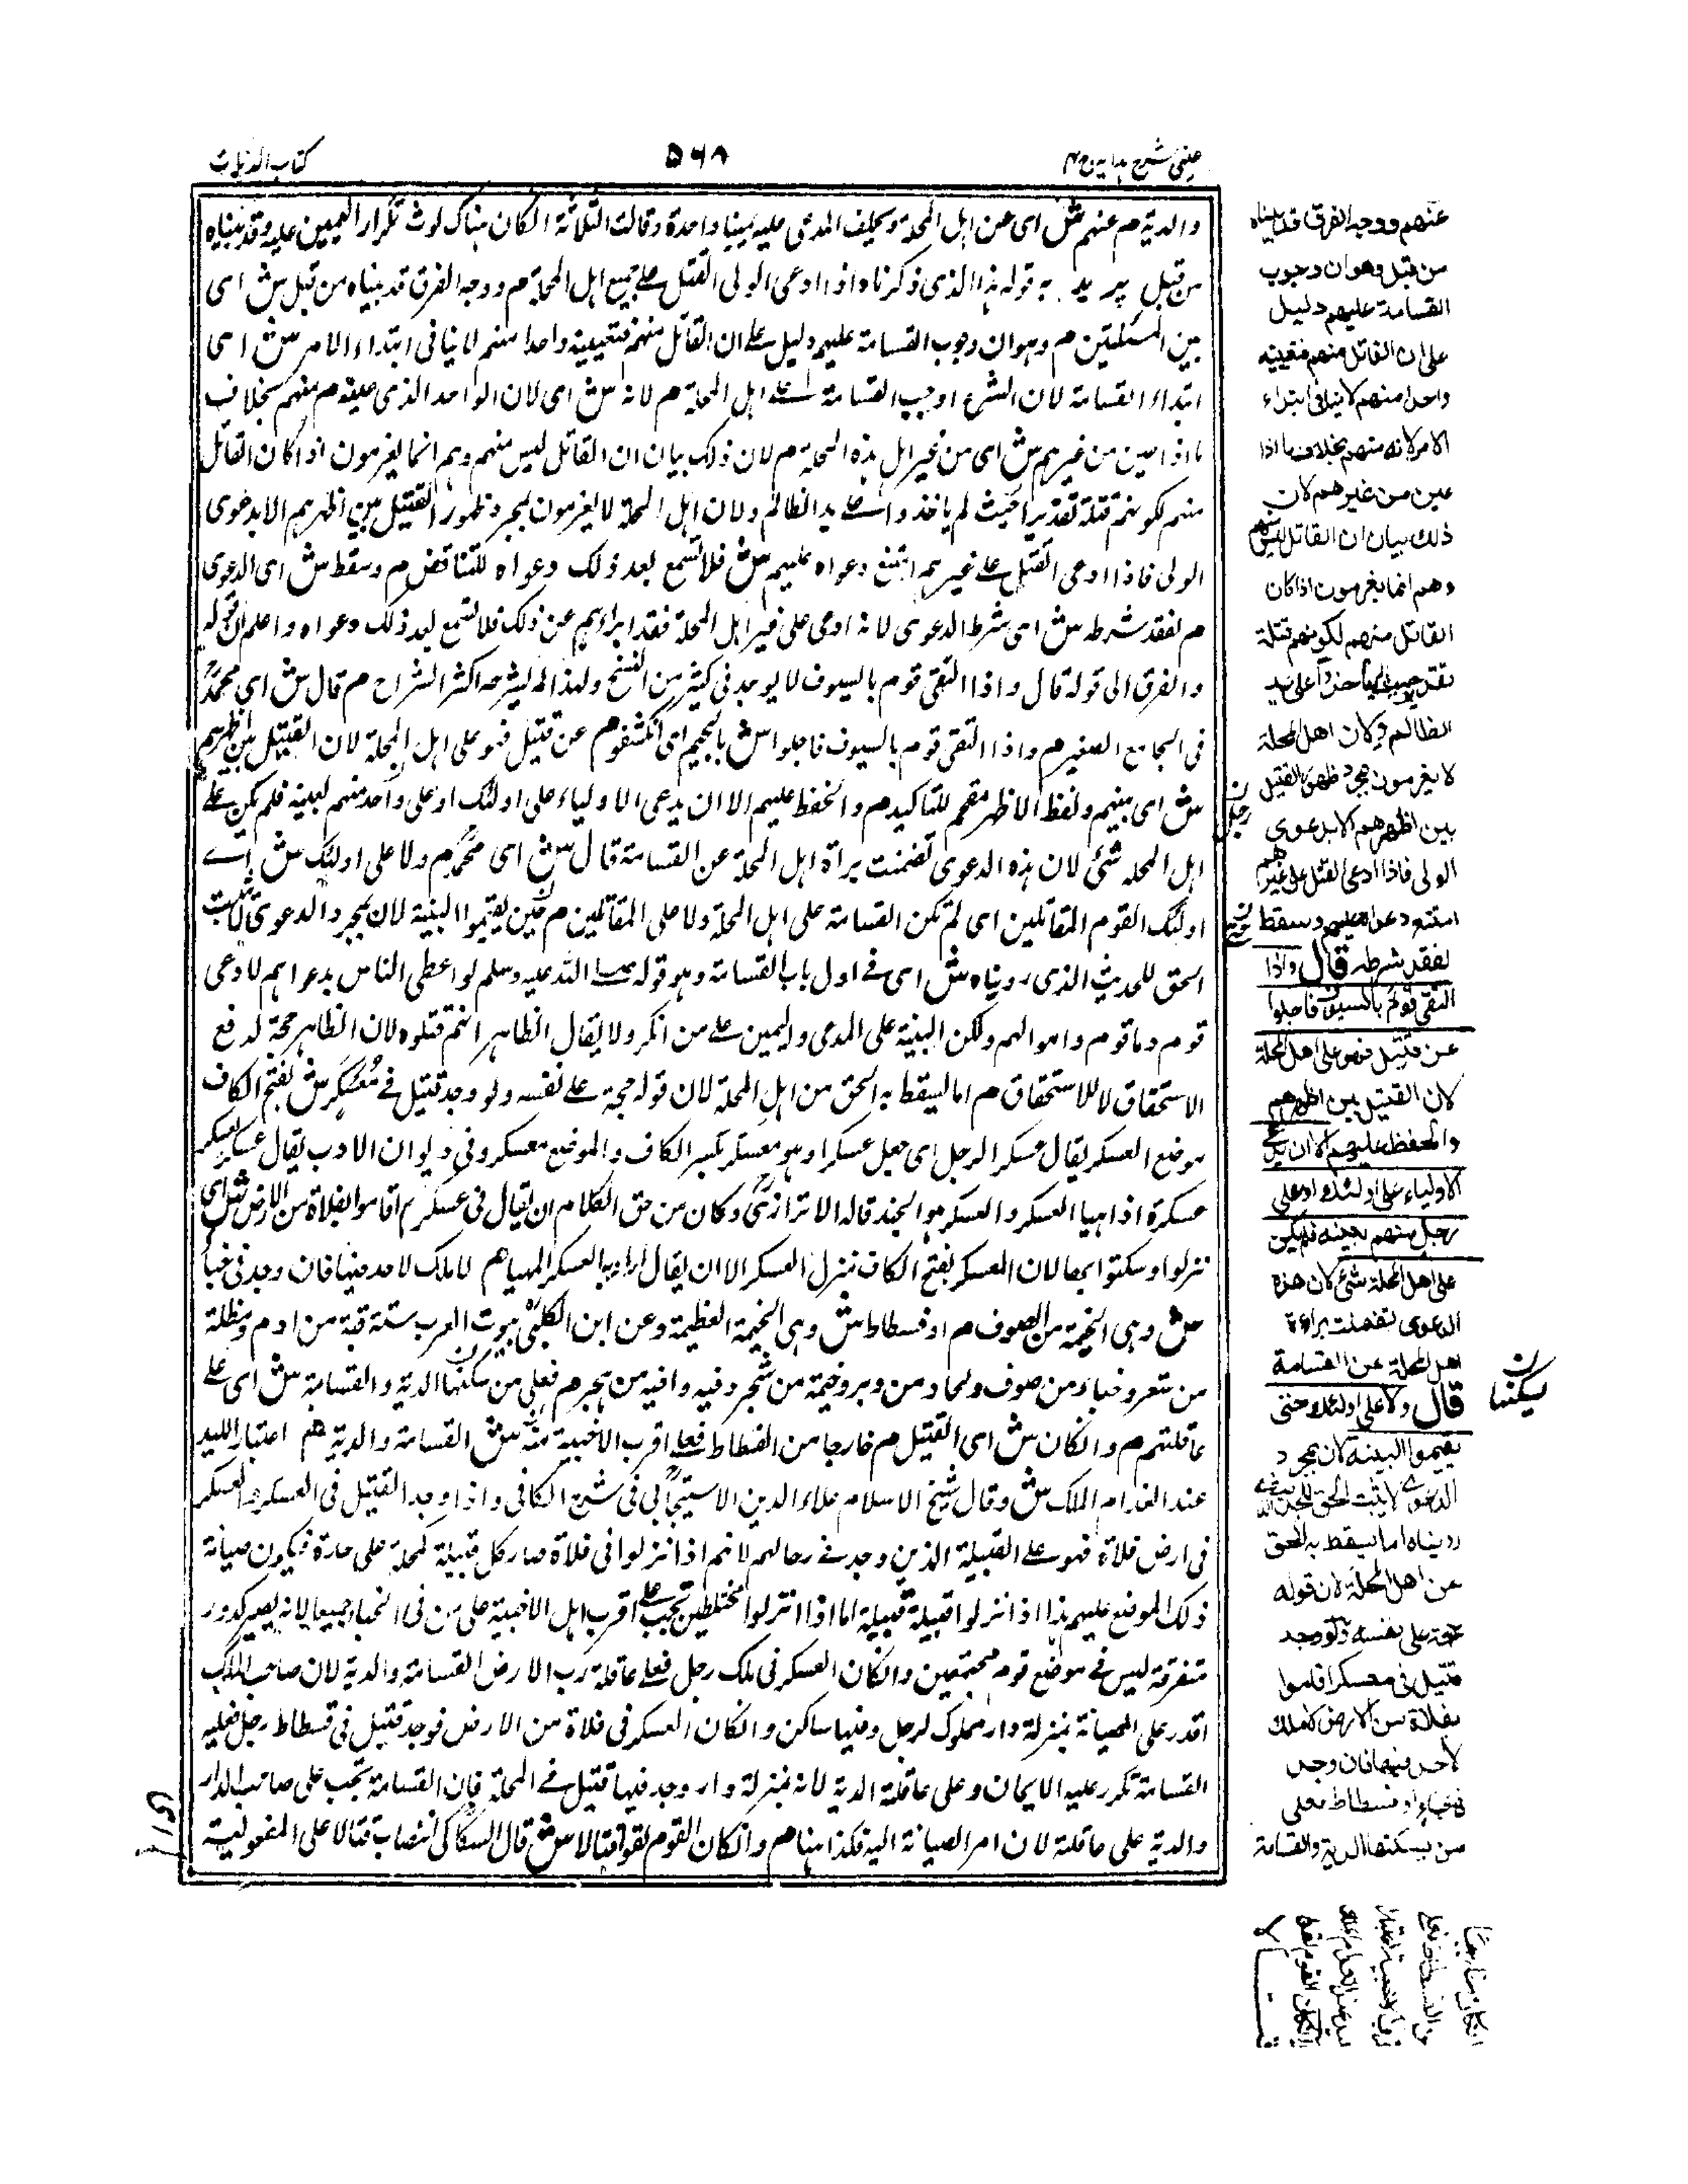 عینی شرح ہدایہ ج ۴
۵۶۸
کتاب الدیات
والدیة م عنهم ش ای عن اهل المحلة ویحلف المدعی علیه یمینا واحدة وقالت الثلاثة ان کان هناک لوث تکرار الیمین علیه وقد بیناه
من قبل یرید به قوله هذا الذی ذکرنا واذا ادعی الولی القتل علی جمیع اهل المحلة م ووجه الفرق قد بیناه من قبل ش ای
بین المسئلتین م وهو ان وجوب القسامة علیهم دلیل علی ان القاتل منهم فتعیینه واحدا منهم لا ینافی ابتداء الامر ش ای
ابتداء القسامة لان الشرع اوجب القسامة علی اهل المحلة م لانه ش ای لان الواحد الذی عینه م منهم بخلاف
ما اذا عین من غیرهم ش ای من غیر اهل هذه المحلة م لان ذلک بیان ان القاتل لیس منهم وهم انما یغرمون اذا کان القاتل
منهم لکونهم قتلة تقدیرا حیث لم یاخذوا علی ید الظالم ولان اهل المحلة لا یغرمون بمجرد ظهور القتیل بین اظهرهم الا بدعوی
الولی فاذا ادعی القتل علی غیرهم امتنع دعواه علیهم ش فلا تسمع بعد ذلک دعواه للتناقض م وسقط ش ای الدعوی
م لفقد شرطه ش ای شرط الدعوی لانه ادعی علی غیر اهل المحلة فقد ابراهم عن ذلک فلا تسمع بعد ذلک دعواه واعلم ان قوله
والفرق الی قوله قال واذا التقی قوم بالسیوف لا یوجد فی کثیر من النسخ ولهذا لم یشرحه اکثر الشراح م قال ش ای محمد
فی الجامع الصغیر م واذا التقی قوم بالسیوف فاجلوا ش بالجیم ای انکشفوا م عن قتیل فهو علی اهل المحلة لان القتیل بین اظهرهم
ش ای بینهم ولفظ الاظهر مقحم للتاکید م والحفظ علیهم الا ان یدعی الاولیاء علی اولئک او علی واحد منهم بعینه فلم یکن علی
اهل المحلة شئ لان هذه الدعوی تضمنت براة اهل المحلة عن القسامة قال ش ای محمد م ولا علی اولئک ش ای
اولئک القوم المقاتلین ای لم تکن القسامة علی اهل المحلة ولا علی المقاتلین م حین یقیموا البینة لان بمجرد الدعوی لا یثبت
الحق للحدیث الذی رویناه ش ای فی اول باب القسامة وهو قوله صلی الله علیه وسلم لو اعطی الناس بدعواهم لادعی
قوم دماء قوم واموالهم ولکن البینة علی المدعی والیمین علی من انکر ولا یقال الظاهر انهم قتلوه لان الظاهر حجة لدفع
الاستحقاق لا للاستحقاق م اما یسقط به الحق من اهل المحلة لان قوله حجة علی نفسه ولو وجد قتیل فی معسکر ش بفتح الکاف
موضع العسکر یقال عسکر الرجل ای جعل عسکرا وهو معسکر بکسر الکاف والموضع معسکر وفی دیوان الادب یقال عسکر یعسکر
عسکرة اذا هیأ العسکر والعسکر هو الجند قاله الاترازی وکان من حق الکلام ان یقال فی عسکر م اقاموا بفلاة من الارض ش ای
نزلوا او سکنوا بها لان المعسکر بفتح الکاف منزل العسکر الا ان یقال اراد به العسکر المهیا م لا ملک لاحد فیها فان وجد فی خباء
ش وهی الخیمة من الصوف م او فسطاط ش وهی الخیمة العظیمة وعن ابن الکلبی بیوت العرب ستة قبة من ادم ومظلة
من شعر وخباء من صوف وبجاد من وبر وخیمة من شجر وقبة واقیه من حجر م فعلی من یسکنها الدیة والقسامة ش ای علی
عاقلتهم م وان کان ش ای القتیل م خارجا من الفسطاط فعلی اقرب الاخبیة منه ش القسامة والدیة م اعتبارا للید
عند انعدام الملک ش وقال شیخ الاسلام علاء الدین الاسبیجابی فی شرح الکافی واذا وجد القتیل فی العسکر والعسکر
فی ارض فلاة فهو علی القبیلة الذین وجد فی رحالهم لانهم اذا نزلوا فی فلاة صار کل قبیلة کمحلة علی حدة فیکون صیانة
ذلک الموضع علیهم هذا اذا نزلوا قبیلة قبیلة اما اذا نزلوا مختلطین تجب علی اقرب اهل الاخبیة علی من فی الخباء جمیعا لانه یصیر کدور
متفرقة لیس فی موضع قوم مجتمعین وان کان العسکر فی ملک رجل فعلی عاقلة رب الارض القسامة والدیة لان صاحب الملک
اقدر علی الصیانة بمنزلة دار مملوک لرجل وفیها ساکن وان کان العسکر فی فلاة من الارض فوجد قتیل فی فسطاط رجل فعلیه
القسامة تکرر علیه الایمان وعلی عاقلته الدیة لانه بمنزلة دار وجد فیها قتیل فی المحلة فان القسامة تجب علی صاحب الدار
والدیة علی عاقلة لان امر الصیانة الیه فکذا ههنا م وان کان القوم لقوا قتالا ش قال السکاکی انتصاب قتالا علی المفعولیة
عنهم ووجه الفرق قد بیناه
من قبل وهو ان وجوب
القسامة علیهم دلیل
علی ان القاتل منهم فتعیینه
واحدا منهم لا ینافی ابتداء
الامر لانه منهم بخلاف ما اذا
عین من غیرهم لان
ذلک بیان ان القاتل لیس منهم
وهم انما یغرمون اذا کان
القاتل منهم لکونهم قتلة
تقدیرا حیث لم یاخذوا علی ید
الظالم ولان اهل المحلة
لا یغرمون بمجرد ظهور القتیل
بین اظهرهم الا بدعوی
الولی فاذا ادعی القتل علی غیرهم
امتنع دعواه علیهم وسقط
لفقد شرطه قال واذا
التقی قوم بالسیوف فاجلوا
عن قتیل فهو علی اهل المحلة
لان القتیل بین اظهرهم
والحفظ علیهم الا ان یدعی
الاولیاء علی اولئک او علی
رجل منهم بعینه فلم یکن
علی اهل المحلة شئ لان هذه
الدعوی تضمنت براءة
اهل المحلة عن القسامة
قال ولا علی اولئک حتی
یقیموا البینة لان بمجرد
الدعوی لا یثبت الحق للحدیث الذی
رویناه اما یسقط به الحق
عن اهل المحلة لان قوله
حجة علی نفسه ولو وجد
قتیل فی معسکر اقاموا
بفلاة من الارض لا ملک
لاحد فیها فان وجد
فی خباء او فسطاط فعلی
من یسکنها الدیة والقسامة
ن
یسکنها